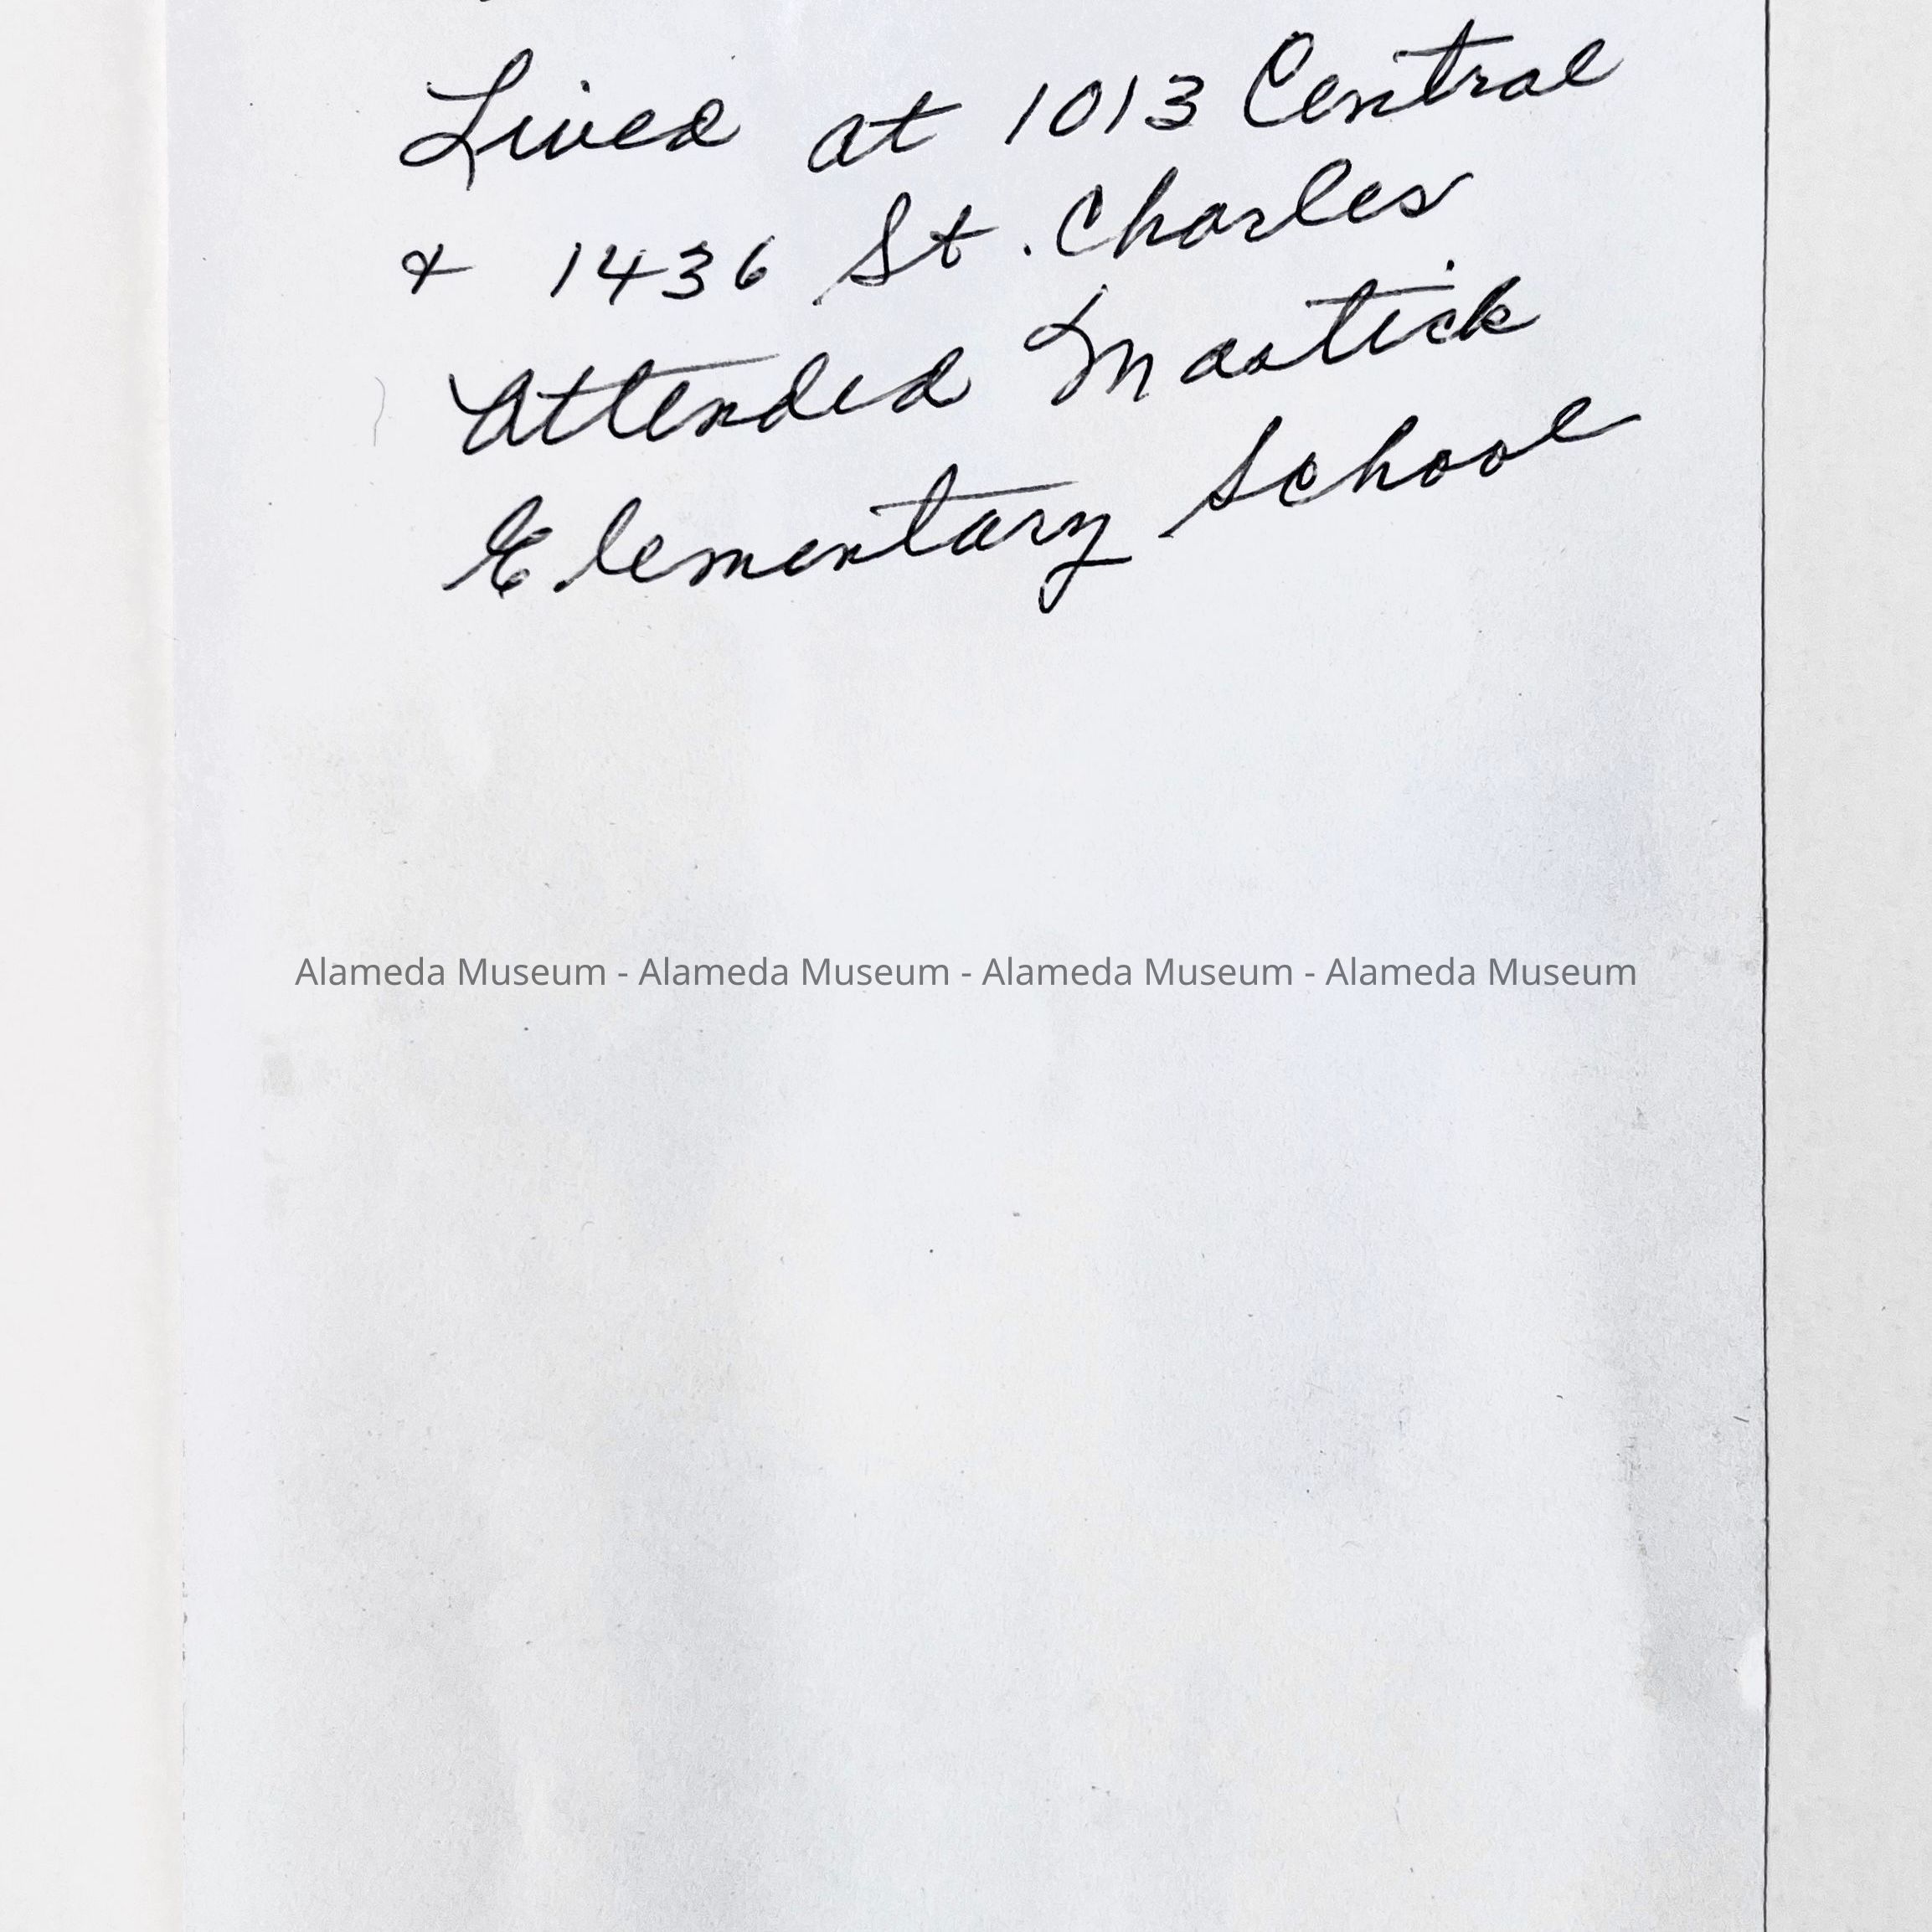 Lived at 1013 Central
& 1436 St. Charles
Attended Mastick
Elementary School
Alameda Museum - Alameda Museum - Alameda Museum - Alameda Museum